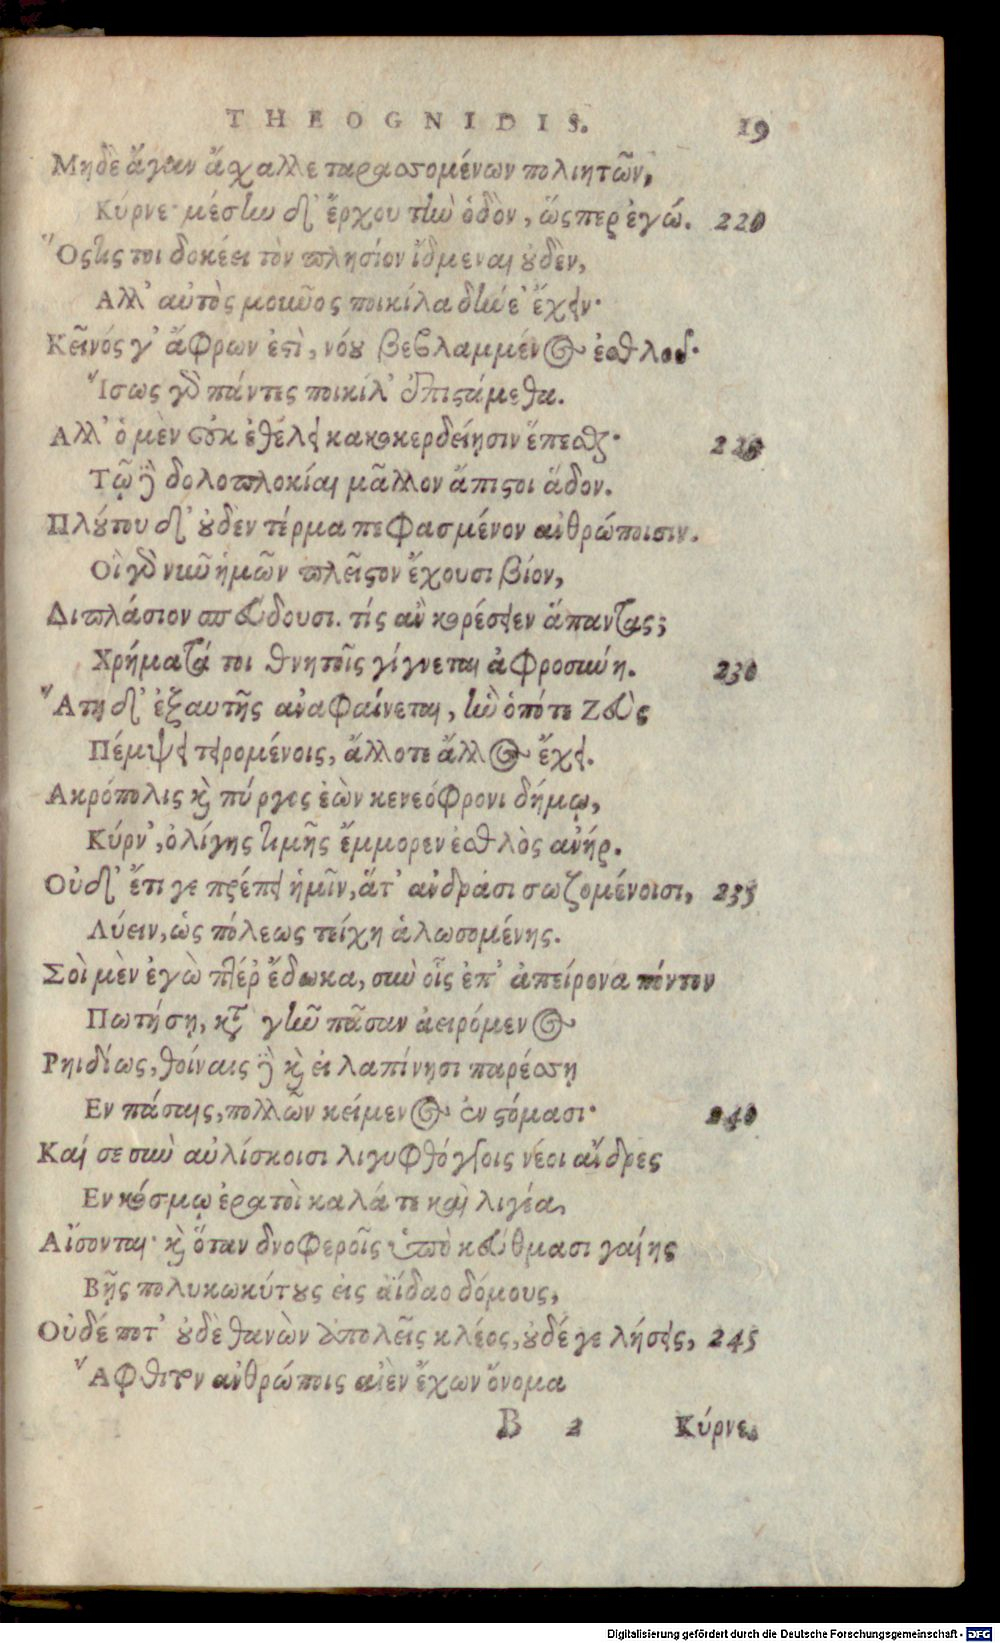 THEOGNIDIS. 19
Μηδὲ ἄγαν ἄχαλλε ταρασσομένων πολιητῶν,
Κύρνε· μέσην δ' ἔρχου τὴν ὁδὸν, ὥςπερ ἐγώ. 220
Ὅςτις τοι δοκέει τὸν πλησίον ἴδμεναι οὐδὲν,
Ἀλλ' αὐτὸς μοῦνος ποικίλα δήνε' ἔχειν·
Κεῖνός γ' ἄφρων ἐστὶ, νόου βεβλαμμένος ἐσθλοῦ·
Ἴσως γὸ πάντες ποικίλ' ἐπιστάμεθα.
Ἀλλ' ὁ μὲν οὐκ ἐθέλει κακοκερδείῃσιν ἕπεσθαι· 225
Τῷ δὲ δολοπλοκίαι μᾶλλον ἄπιστοι ἅδον.
Πλούτου δ' οὐδεν τέρμα πεφασμένον ἀνθρώποισιν.
Οἳ γὸ νῦν ἡμῶν πλεῖστον ἔχουσι βίον,
Διπλάσιον σπεύδουσι. τίς ἂν κορέσειεν ἅπαντας;
Χρήματά τοι θνητοῖς γίγνεται ἀφροσύνη. 230
Ἄτη δ' ἐξαυτῆς ἀναφαίνεται, ἣν ὁπότε Ζεὺς
Πέμψει τειρομένοις, ἄλλοτε ἄλλος ἔχει.
Ἀκρόπολις καὶ πύργος ἐὼν κενεόφρονι δήμῳ,
Κύρν', ὀλίγης τιμῆς ἔμμορεν ἐσθλὸς ἀνήρ.
Οὐδ' ἔτι γε πρέπει ἡμῖν, ἅτ' ἀνδράσι σωζομένοισι, 235
Λύειν, ὡς πόλεως τείχη ἁλωσομένης.
Σοὶ μὲν ἐγὼ πτέρ' ἔδωκα, σὺν οἷς ἐπ' ἀπείρονα πόντον
Πωτήσῃ, κατὰ γῆν πᾶσαν ἀειρόμενος
Ῥηιδίως, θοίναις δὲ καὶ εἰλαπίνησι παρέσσῃ
Ἐν πάσαις, πολλῶν κείμενος ἐν στόμασι· 240
Καί σε σὺν αὐλίσκοισι λιγυφθόγγοις νέοι ἄνδρες
Ἐν κόσμῳ ἐρατοὶ καλά τε καὶ λιγέα
Ἄισονται· καὶ ὅταν δνοφεροῖς ὑπὸ κεύθμασι γαίης
Βῇς πολυκωκύτους εἰς ἀΐδαο δόμους,
Οὐδέ ποτ' οὐδὲ θανὼν ἀπολεῖς κλέος, οὐδέ γε λήσεις, 245
Ἄφθιτον ἀνθρώποις αἰὲν ἔχων ὄνομα
B 2 Κύρνε.
Digitalisierung gefördert durch die Deutsche Forschungsgemeinschaft - DFG